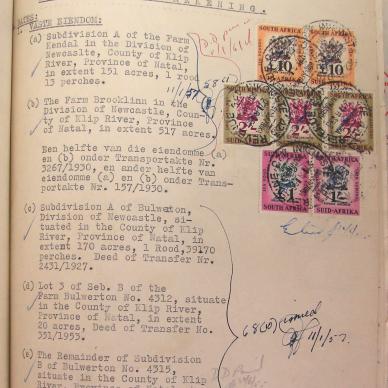 EKENING.
BATES:
1. VASTE EIENDOM:
(a) Subdivision A of the Farm
Kendal in the Division of
Newcastle, County of Klip
River, Province of Natal,
in extent 151 acres, 1 rood
13 perches.
(b) The Farm Brooklinn in the
Division of Newcastle, Coun-
ty of Klip River, Province
of Natal, in extent 517 acres.
Een helfte van die eiendomme (a)
en (b) onder Transportakte Nr.
3267/1930, en ander helfte van
eiendomme (a) en (b) onder Trans-
portakte Nr. 157/1930.
(c) Subdivision A of Bulwerton,
Division of Newcastle, si-
tuated in the County of Klip
River, Province of Natal, in
extent 170 acres, 1 Rood,39170
perches. Deed of Transfer Nr.
2431/1927.
(d) Lot 3 of Seb. B of the
Farm Bulwerton No. 4312, situate
in the County of Klip River,
Province of Natal, in extent
20 acres, Deed of Transfer No.
351/1953.
(e) The Remainder of Subdivision
B of Bulwerton No. 4315,
situate in the County of Klip
River, Province of Natal, in
SOUTH AFRICA
£10
£10
SUID-AFRIKA
SOUTH AFRICA
2/-
2/-
2/-
SOUTH AFRICA
SUID-AFRIKA
1/-
68(1)
11/1/57
68(1) issued
11/1/57